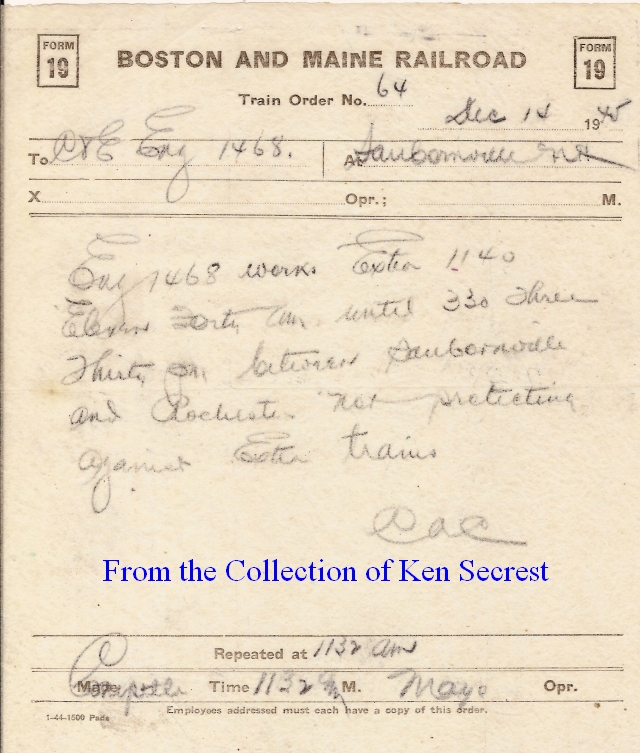 FORM 19
BOSTON AND MAINE RAILROAD
FORM 19
Train Order No. 64
Dec 14 1945
To C&E Eng 1468. At Sanbornville NH
X Opr.; M.
Eng 1468 works Extra 1140
Eleven Forty am until 330 Three
Thirty pm between Sanbornville
and Rochester not protecting
against Extra trains
CaC
From the Collection of Ken Secrest
Repeated at 1132 am
Made Complete Time 1132 am M. Mayo Opr.
Employees addressed must each have a copy of this order.
1-44-1500 Pads